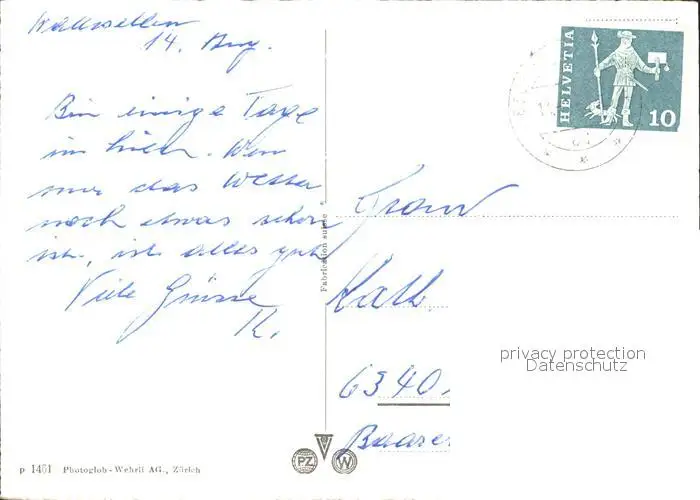 14. Aug.
Bin einige Tage
im hier. Wenn
nur das Wetter
noch etwas schön
ist, ist alles gut
Viele Grüsse
R.
HELVETIA
10
Frau
Kath.
6340
Baarer
Fabrication suisse
privacy protection
Datenschutz
PZ W
p 1461 Photoglob-Wehrli AG., Zürich